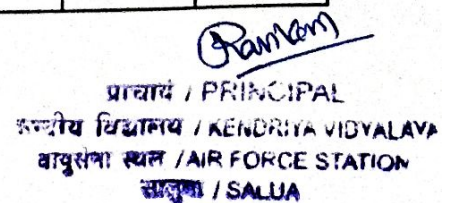 प्राचार्य / PRINCIPAL
केन्द्रीय विद्यालय / KENDRIYA VIDYALAYA
वायुसेना स्थल /AIR FORCE STATION
सालुआ / SALUA